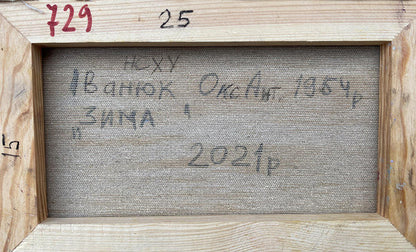 729
25
НСХУ
Іванюк Окс Ант. 1954р
"ЗИМА"
2021р
15